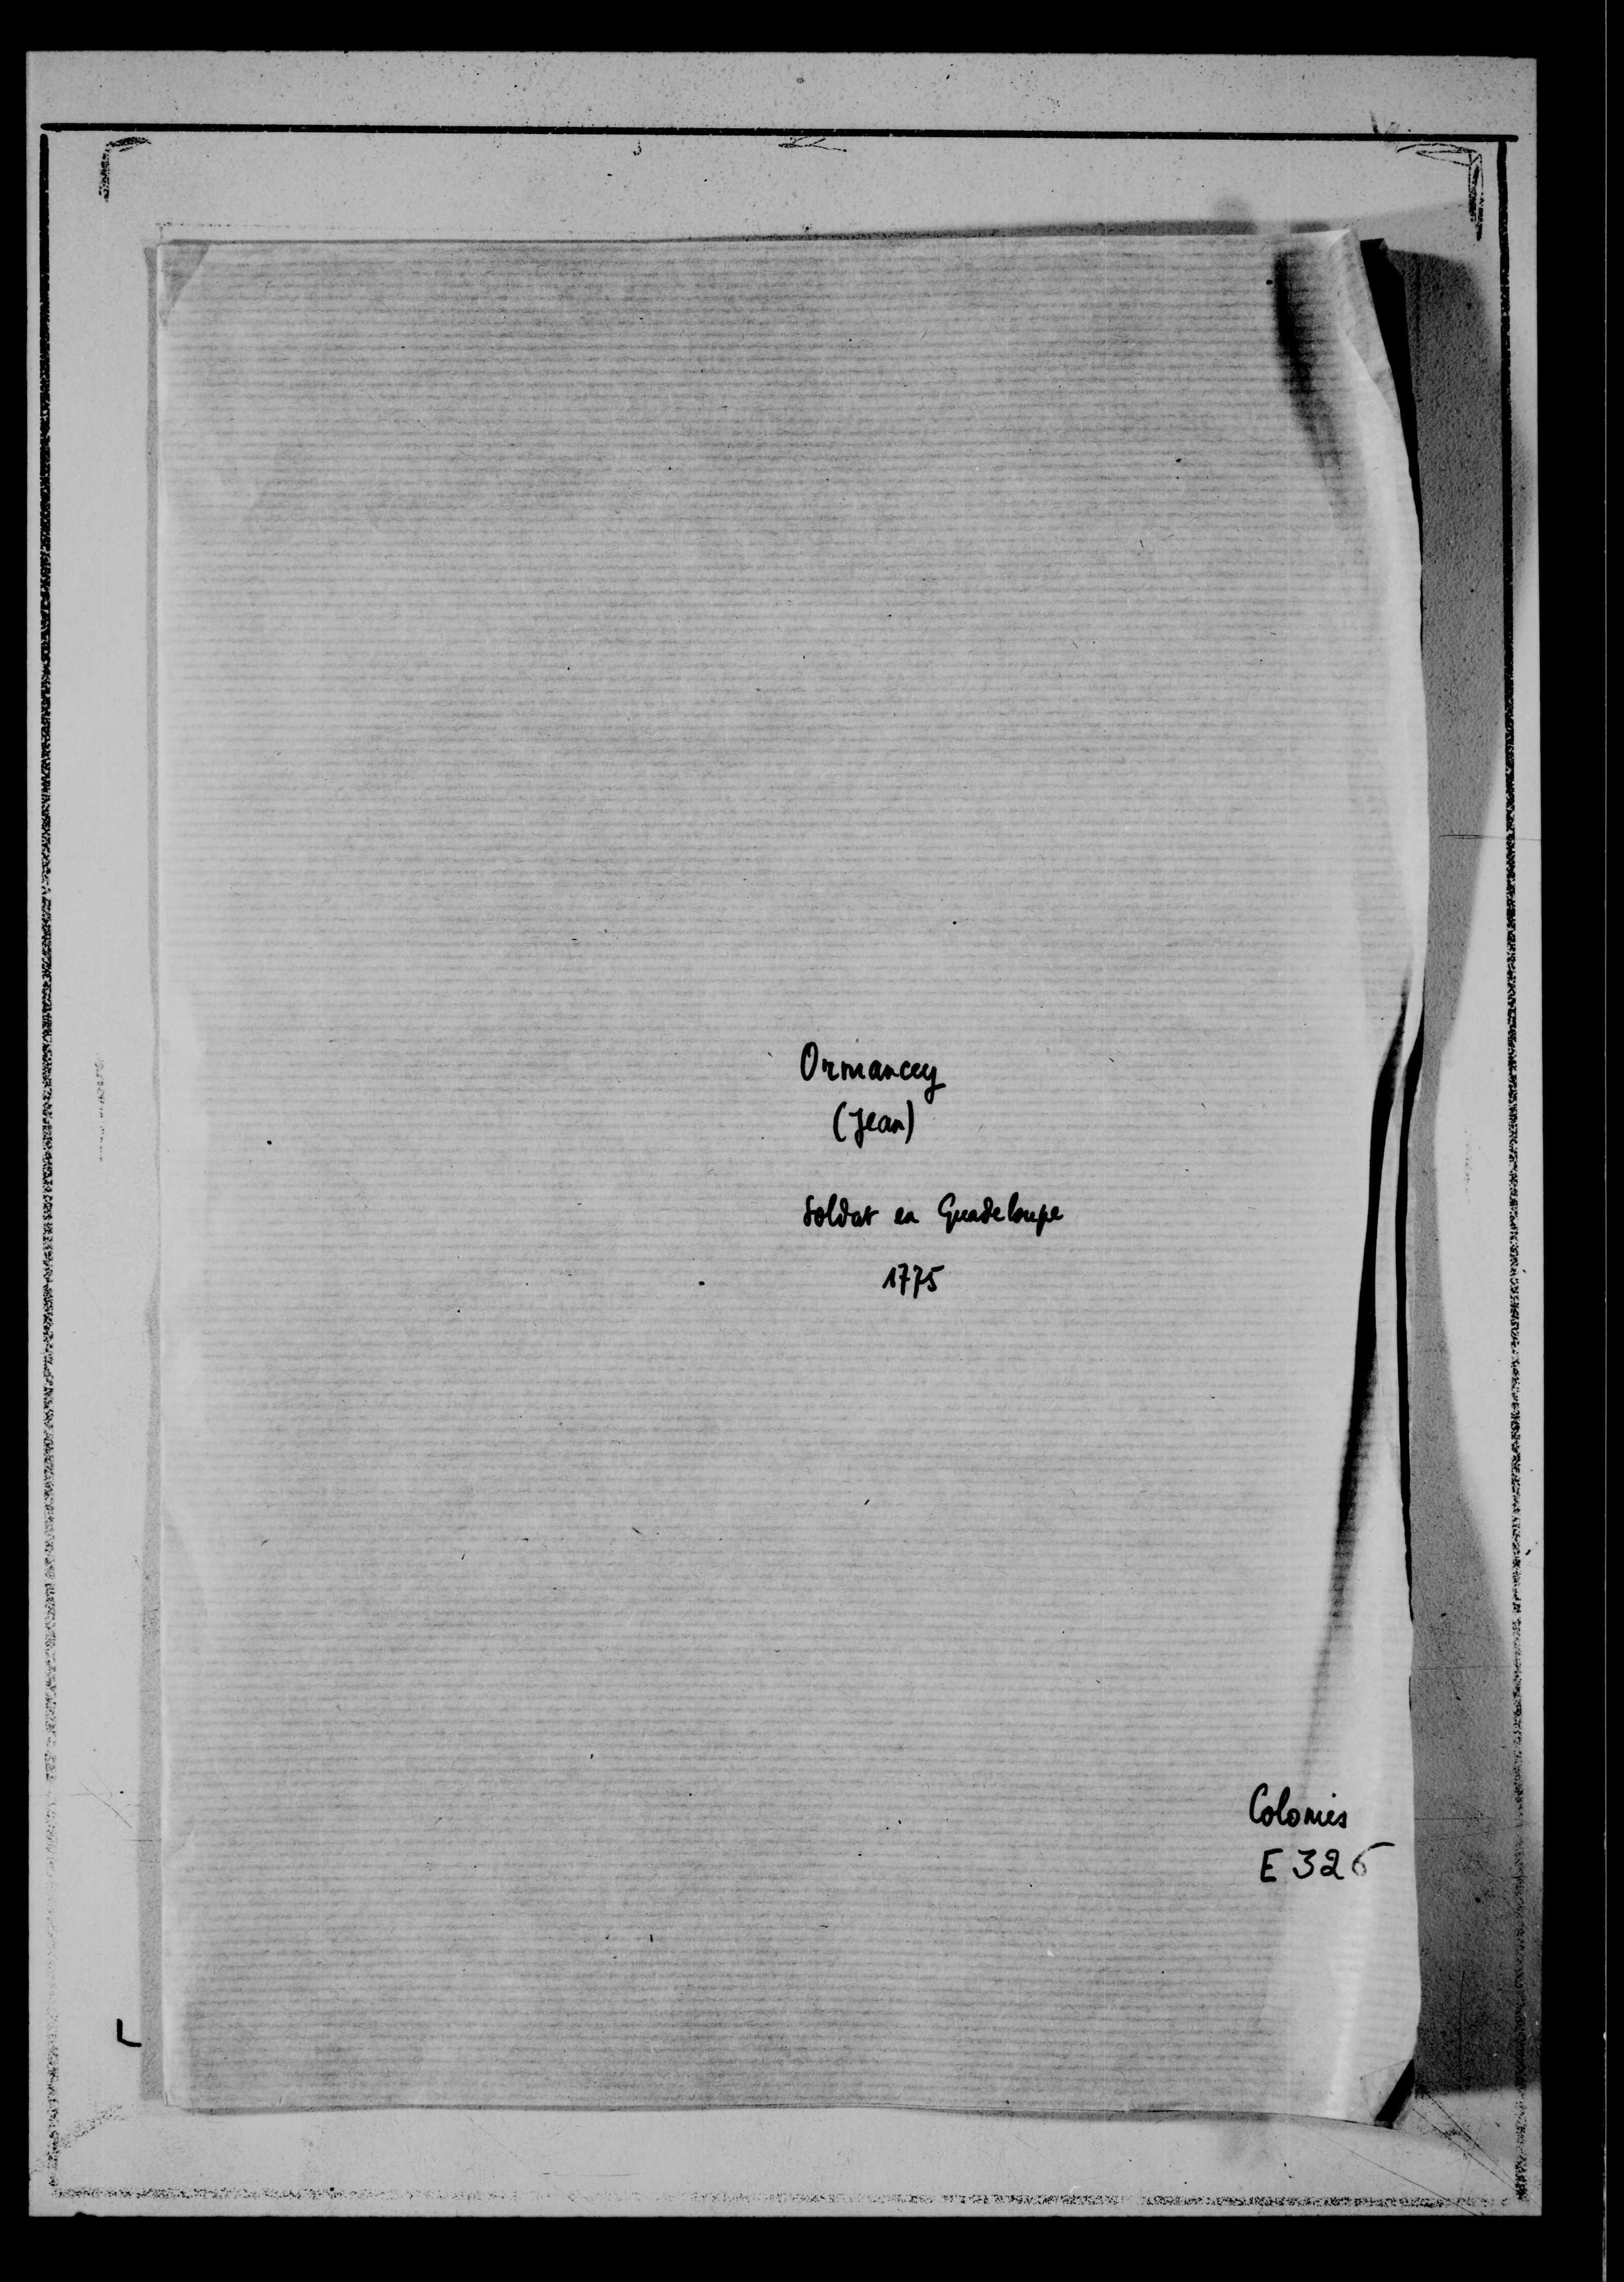 Ormancey
(Jean)
Soldat en Guadeloupe
1775
Colonies
E 326